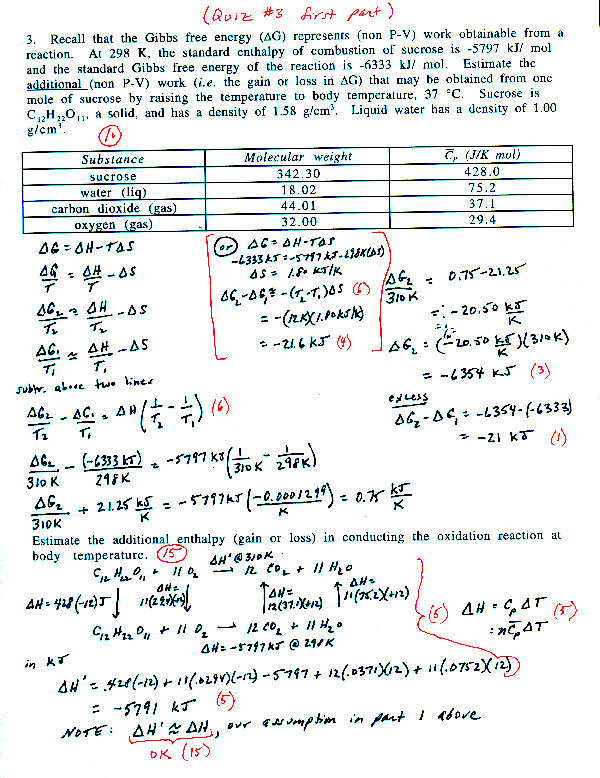 (Quiz #3 first part)
3. Recall that the Gibbs free energy (ΔG) represents (non P-V) work obtainable from a
reaction. At 298 K, the standard enthalpy of combustion of sucrose is -5797 kJ/ mol
and the standard Gibbs free energy of the reaction is -6333 kJ/ mol. Estimate the
additional (non P-V) work (i.e. the gain or loss in ΔG) that may be obtained from one
mole of sucrose by raising the temperature to body temperature, 37 °C. Sucrose is
C₁₂H₂₂O₁₁, a solid, and has a density of 1.58 g/cm³. Liquid water has a density of 1.00
g/cm³.
Substance Molecular weight C̄ₚ (J/K mol)
sucrose 342.30 428.0
water (liq) 18.02 75.2
carbon dioxide (gas) 44.01 37.1
oxygen (gas) 32.00 29.4
ΔG = ΔH - TΔS
ΔG/T = ΔH/T - ΔS
ΔG₂/T₂ ≈ ΔH/T₂ - ΔS
ΔG₁/T₁ ≈ ΔH/T₁ - ΔS
subtr. above two lines
ΔG₂/T₂ - ΔG₁/T₁ = ΔH (1/T₂ - 1/T₁) (6)
ΔG₂/310K - (-6333 kJ)/298K = -5797 kJ (1/310K - 1/298K)
ΔG₂/310K + 21.25 kJ/K = -5797kJ (-0.0001299/K) = 0.75 kJ/K
(or) ΔG = ΔH - TΔS
-6333 kJ = -5797 kJ - 298K(ΔS)
ΔS = 1.80 kJ/K
ΔG₂-ΔG₁ ≅ -(T₂-T₁)ΔS (6)
= -(12K)(1.80kJ/K)
= -21.6 kJ (4)
ΔG₂/310K = 0.75-21.25
= -20.50 kJ/K
ΔG₂ = (-20.50 kJ/K)(310K)
= -6354 kJ (3)
excess
ΔG₂-ΔG₁ = -6354-(-6333)
= -21 kJ (1)
Estimate the additional enthalpy (gain or loss) in conducting the oxidation reaction at
body temperature. (15)
ΔH' @ 310K
C₁₂H₂₂O₁₁ + 11 O₂ → 12 CO₂ + 11 H₂O
ΔH = 428(-12)J ↓ ΔH = ↓ ↑ ΔH = 12(37.1)(+12) ↑ ΔH = 11(75.2)(+12)
(5) ΔH = Cₚ ΔT (5)
= nC̄ₚΔT
C₁₂H₂₂O₁₁ + 11 O₂ → 12 CO₂ + 11 H₂O
ΔH = -5797 kJ @ 298K
in kJ
ΔH' = .428(-12) + 11(.0294)(-12) - 5797 + 12(.0371)(12) + 11(.0752)(12)
= -5791 kJ (5)
NOTE: ΔH' ≈ ΔH, our assumption in part 1 above
OK (15)